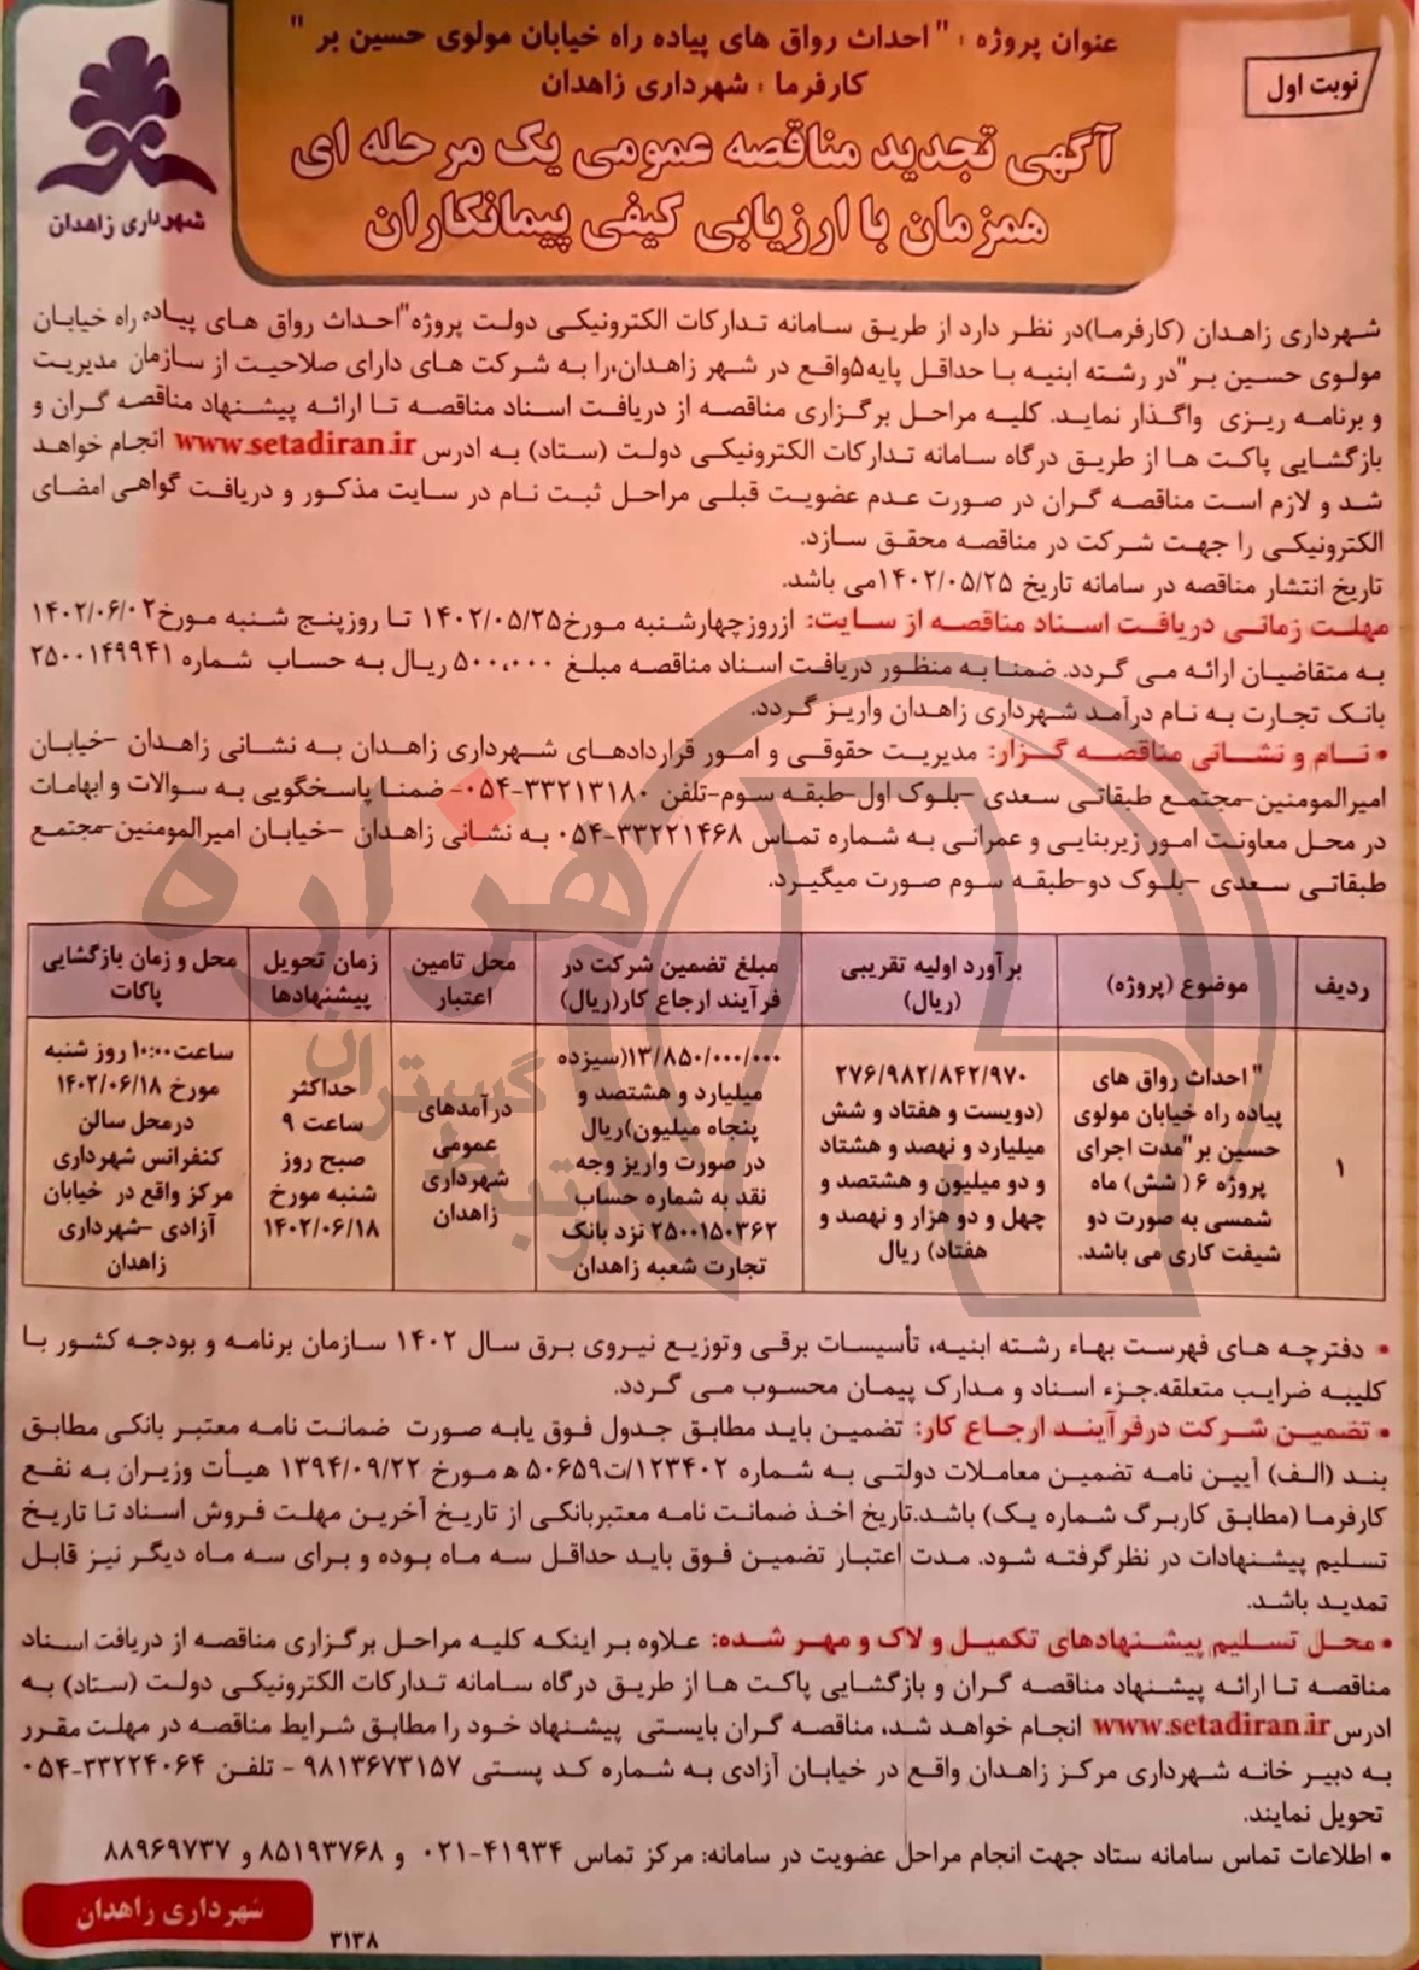 عنوان پروژه : " احداث رواق های پیاده راه خیابان مولوی حسین بر "
کارفرما : شهرداری زاهدان
نوبت اول
شهرداری زاهدان
آگهی تجدید مناقصه عمومی یک مرحله ای
همزمان با ارزیابی کیفی پیمانکاران
شهرداری زاهدان (کارفرما)در نظر دارد از طریق سامانه تدارکات الکترونیکی دولت پروژه"احداث رواق های پیاده راه خیابان
مولوی حسین بر"در رشته ابنیه با حداقل پایه۵واقع در شهر زاهدان،را به شرکت های دارای صلاحیت از سازمان مدیریت
و برنامه ریزی واگذار نماید. کلیه مراحل برگزاری مناقصه از دریافت اسناد مناقصه تا ارائه پیشنهاد مناقصه گران و
بازگشایی پاکت ها از طریق درگاه سامانه تدارکات الکترونیکی دولت (ستاد) به ادرس www.setadiran.ir انجام خواهد
شد و لازم است مناقصه گران در صورت عدم عضویت قبلی مراحل ثبت نام در سایت مذکور و دریافت گواهی امضای
الکترونیکی را جهت شرکت در مناقصه محقق سازد.
تاریخ انتشار مناقصه در سامانه تاریخ ۱۴۰۲/۰۵/۲۵می باشد.
مهلت زمانی دریافت اسناد مناقصه از سایت: ازروزچهارشنبه مورخ۱۴۰۲/۰۵/۲۵ تا روزپنج شنبه مورخ۱۴۰۲/۰۶/۰۲
به متقاضیان ارائه می گردد. ضمنا به منظور دریافت اسناد مناقصه مبلغ ۵۰۰،۰۰۰ ریال به حساب شماره ۲۵۰۰۱۴۹۹۴۱
بانک تجارت به نام درآمد شهرداری زاهدان واریز گردد.
• نام و نشانی مناقصه گزار: مدیریت حقوقی و امور قراردادهای شهرداری زاهدان به نشانی زاهدان -خیابان
امیرالمومنین-مجتمع طبقاتی سعدی -بلوک اول-طبقه سوم-تلفن ۳۳۲۱۳۱۸۰-۰۵۴- ضمنا پاسخگویی به سوالات و ابهامات
در محل معاونت امور زیربنایی و عمرانی به شماره تماس ۳۳۲۲۱۴۶۸-۰۵۴ به نشانی زاهدان -خیابان امیرالمومنین-مجتمع
طبقاتی سعدی -بلوک دو-طبقه سوم صورت میگیرد.
ردیف
موضوع (پروژه)
برآورد اولیه تقریبی
(ریال)
مبلغ تضمین شرکت در
فرآیند ارجاع کار(ریال)
محل تامین
اعتبار
زمان تحویل
پیشنهادها
محل و زمان بازگشایی
پاکات
۱
" احداث رواق های
پیاده راه خیابان مولوی
حسین بر"مدت اجرای
پروژه ۶ (شش) ماه
شمسی به صورت دو
شیفت کاری می باشد.
۲۷۶/۹۸۲/۸۴۲/۹۷۰
(دویست و هفتاد و شش
میلیارد و نهصد و هشتاد
و دو میلیون و هشتصد و
چهل و دو هزار و نهصد و
هفتاد) ریال
۱۳/۸۵۰/۰۰۰/۰۰۰(سیزده
میلیارد و هشتصد و
پنجاه میلیون)ریال
در صورت واریز وجه
نقد به شماره حساب
۲۵۰۰۱۵۰۳۶۲ نزد بانک
تجارت شعبه زاهدان
درآمدهای
عمومی
شهرداری
زاهدان
حداکثر
ساعت ۹
صبح روز
شنبه مورخ
۱۴۰۲/۰۶/۱۸
ساعت۱۰:۰۰ روز شنبه
مورخ ۱۴۰۲/۰۶/۱۸
درمحل سالن
کنفرانس شهرداری
مرکز واقع در خیابان
آزادی -شهرداری
زاهدان
• دفترچه های فهرست بهاء رشته ابنیه، تأسیسات برقی وتوزیع نیروی برق سال ۱۴۰۲ سازمان برنامه و بودجه کشور با
کلیه ضرایب متعلقه.جزء اسناد و مدارک پیمان محسوب می گردد.
• تضمین شرکت درفرآیند ارجاع کار: تضمین باید مطابق جدول فوق یابه صورت ضمانت نامه معتبر بانکی مطابق
بند (الف) آیین نامه تضمین معاملات دولتی به شماره ۱۲۳۴۰۲/ت۵۰۶۵۹ ه مورخ ۱۳۹۴/۰۹/۲۲ هیأت وزیران به نفع
کارفرما (مطابق کاربرگ شماره یک) باشد.تاریخ اخذ ضمانت نامه معتبربانکی از تاریخ آخرین مهلت فروش اسناد تا تاریخ
تسلیم پیشنهادات در نظرگرفته شود. مدت اعتبار تضمین فوق باید حداقل سه ماه بوده و برای سه ماه دیگر نیز قابل
تمدید باشد.
• محل تسلیم پیشنهادهای تکمیل و لاک و مهر شده: علاوه بر اینکه کلیه مراحل برگزاری مناقصه از دریافت اسناد
مناقصه تا ارائه پیشنهاد مناقصه گران و بازگشایی پاکت ها از طریق درگاه سامانه تدارکات الکترونیکی دولت (ستاد) به
ادرس www.setadiran.ir انجام خواهد شد، مناقصه گران بایستی پیشنهاد خود را مطابق شرایط مناقصه در مهلت مقرر
به دبیر خانه شهرداری مرکز زاهدان واقع در خیابان آزادی به شماره کد پستی ۹۸۱۳۶۷۳۱۵۷ - تلفن ۳۳۲۲۴۰۶۴-۰۵۴
تحویل نمایند.
• اطلاعات تماس سامانه ستاد جهت انجام مراحل عضویت در سامانه: مرکز تماس ۴۱۹۳۴-۰۲۱ و ۸۵۱۹۳۷۶۸ و ۸۸۹۶۹۷۳۷
شهرداری زاهدان
۳۱۳۸
هزاره